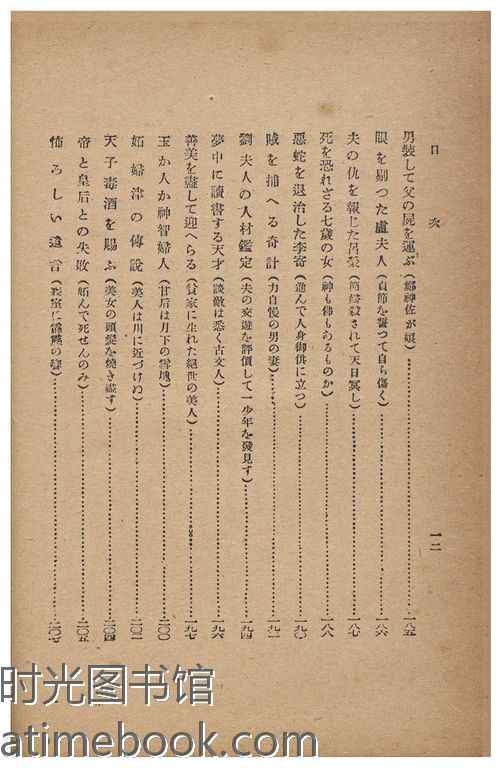 目次
一二
男裝して父の屍を運ぶ(鄒神佐が娘)……一八五
眼を剔つた盧夫人(貞節を誓つて自ら傷く)……一八六
夫の仇を報じた呂榮(節終殺されて天日冥し)……一八七
死を恐れざる七歲の女(神も佛もあるものか)……一八八
惡蛇を退治した李寄(進んで人身御供に立つ)……一九〇
賊を捕へる奇計(力自慢の男の妻)……一九一
劉夫人の人材鑑定(夫の交遊を評價して一少年を發見す)……一九四
夢中に讀書する天才(談敵は悉く古文人)……一九六
善美を盡して迎へらる(貧家に生れた絕世の美人)……一九七
玉か人か神智婦人(甘后は月下の雪塊)……二〇〇
妬婦津の傳說(美人は川に近づけぬ)……二〇二
天子毒酒を賜ふ(美女の頭髮を燒き盡す)……二〇四
帝と皇后との失敗(妬んで死せんのみ)……二〇五
怖ろしい遺言……二〇七
时光图书馆
atimebook.com